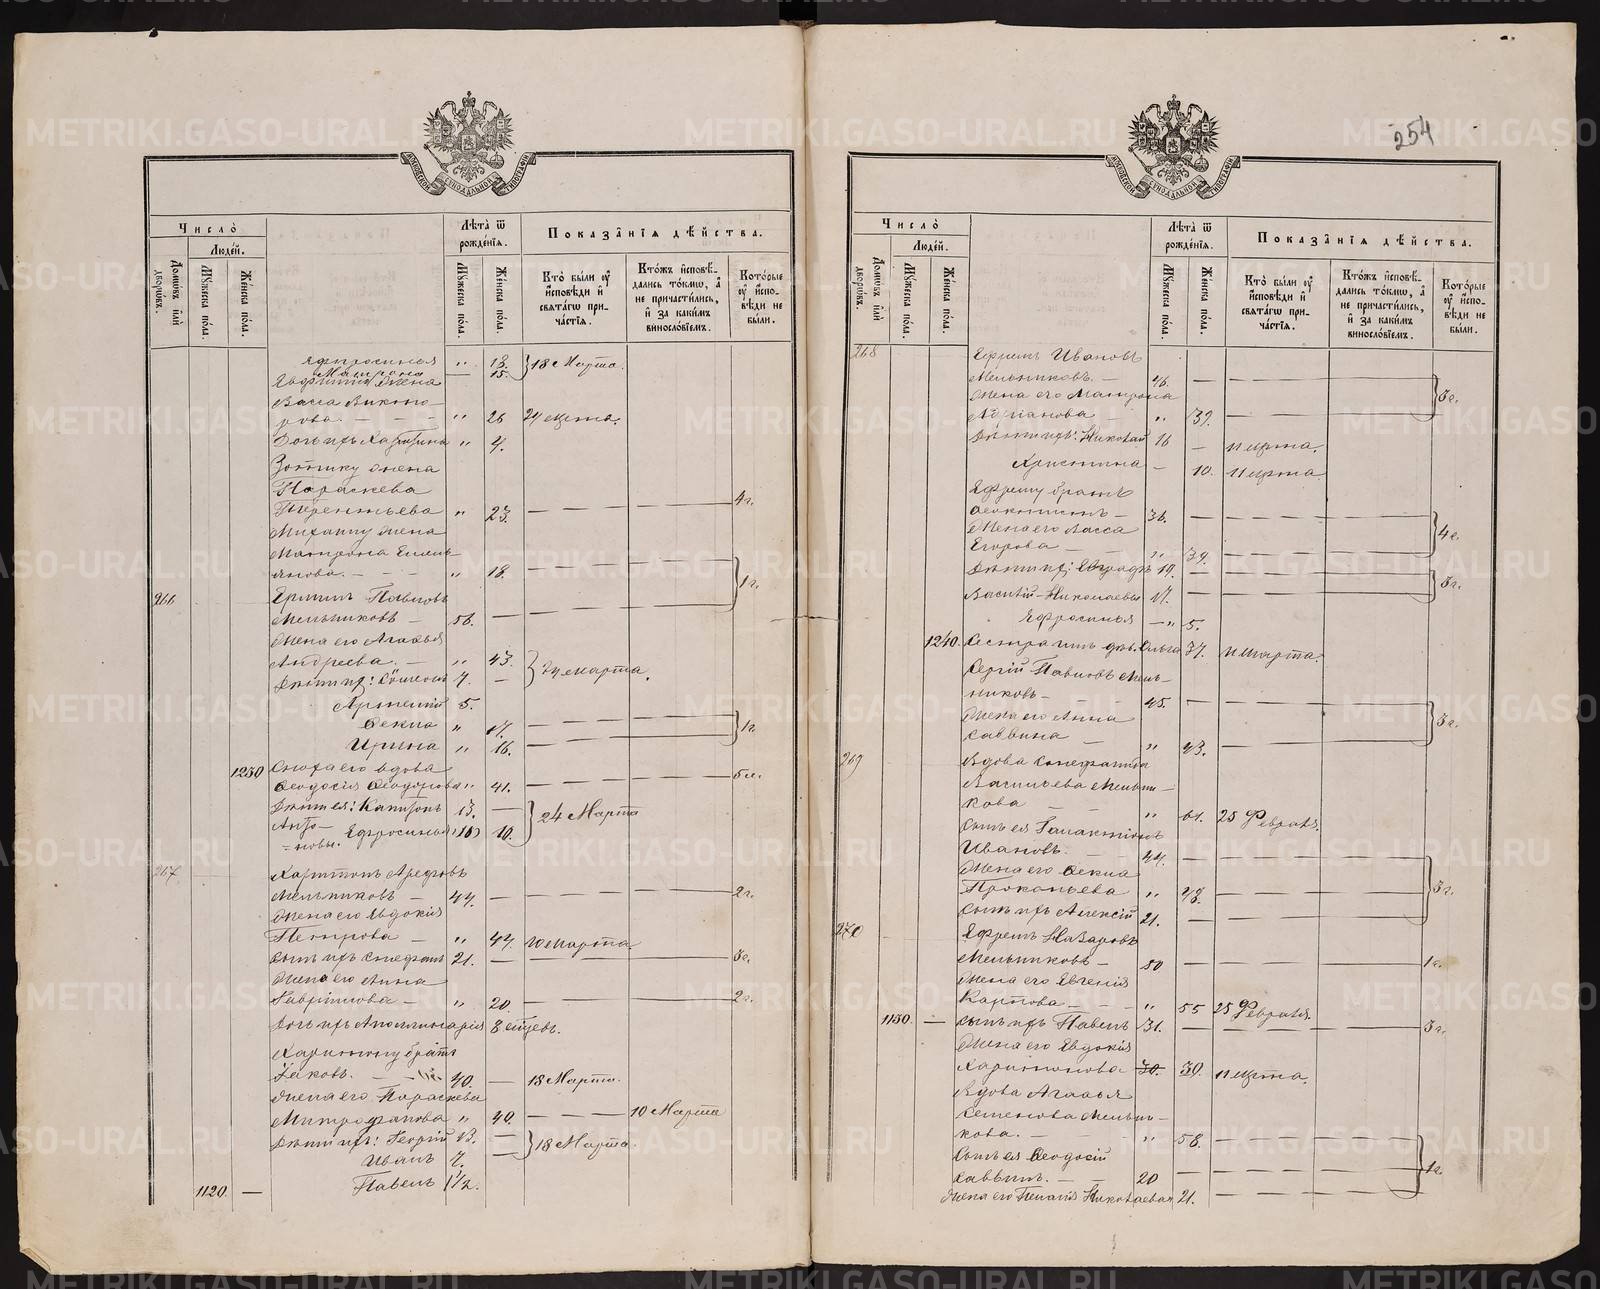 254
МОСКОВСКОЙ СѴНОДАЛЬНОЙ ТИПОГРАФІИ
Число̀
Людей.
Домовъ или дворовъ.
Мужеска пола.
Женска пола.
Лѣта ѿ рожденїя.
Мужеска пола.
Женска пола.
Показанїя дѣйства.
Кто были у исповѣди и святагѡ причастїя.
Ктожъ исповѣдались токмѡ, а не причастились, и за какимъ винословїемъ.
Которые у исповѣди не были.
Ефросинья " 13. 18 Марта.
Матрона 15.
жена
Васса
рова. " 26 24 марта.
Дочь ихъ " 4.
Зотику жена
Параскева
Терентьева " 23. 4 г.
Михаилу жена
Матрона Емель
янова. " 18. 1 г.
266 Павловъ
Мельниковъ 56.
Жена его Агафья
Андреева. " 43. 24 марта.
Дѣти их: 7.
Арсеній 5.
Фекла " 17. 1 г.
Ирина " 16.
1230 Сноха его вдова
Феодосія Феодорова " 41.
Дѣти ея: Капитонъ 13. 24 Марта
Анто-
новы. Ефросинья (10) 10.
267 Харитонъ Арефовъ
Мельниковъ 44. 2 г.
Жена его Евдокія
Петрова " 44. 10 марта.
Сынъ ихъ Стефанъ 21. 3 г.
Жена его Анна
Гавріилова " 20. 2 г.
Дочь ихъ Аполлинарія 8
Харитону братъ
Іаковъ. 40. 18 Марта.
Жена его Параскева
Митрофанова " 40. 10 Марта
Дѣти ихъ: Георгій 13. 18 Марта.
Иванъ 7.
1120. Павелъ 1½.
Число̀
Людей.
Домовъ или дворовъ.
Мужеска пола.
Женска пола.
Лѣта ѿ рожденїя.
Мужеска пола.
Женска пола.
Показанїя дѣйства.
Кто были у исповѣди и святагѡ причастїя.
Ктожъ исповѣдались токмѡ, а не причастились, и за какимъ винословїемъ.
Которые у исповѣди не были.
268 Ефремъ Ивановъ
Мельниковъ. 46. 3 г.
Жена его Матрона
" 39.
Дѣти ихъ: Николай 16 11 марта.
Христина 10. 11 марта
Ефрему братъ
Феоктистъ 36. 4 г.
Жена его Васса
Егорова " 39.
Дѣти их: Евграфъ 19. 3 г.
Василій Николаевы 17.
Ефросинья " 5.
1240. Сестра имъ дѣв. Ольга 37. 11 марта.
Сергій Павловъ Мель-
никовъ 45. 3 г.
Жена его Анна
Саввина " 43.
269 Вдова Стефанида
Васильева Мельни-
кова " 61. 25 Февраля.
Сынъ ея Галактіонъ
Ивановъ. 44. 3 г.
Жена его Фекла
Прокопьева " 48.
Сынъ ихъ Алексій 21.
270 Ефремъ Назаровъ
Мельниковъ 50 1 г.
Жена его Евгенія
Карпова " 55 25 Февраля.
1130. Сынъ ихъ Павелъ 31. 3 г.
Жена его Евдокія
Харитонова 30. 30. 11 марта.
Вдова Агафья
Семенова Мельни-
кова. " 58. 1 г.
Сынъ ея Феодосій
Саввинъ. 20
Жена его Пелагія Николаевая 21.
METRIKI.GASO-URAL.RU